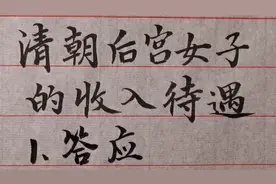 清朝后宫女子
的收入待遇
1、答应